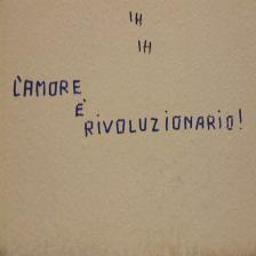 IH
IH
L'AMORE
É
RIVOLUZIONARIO!